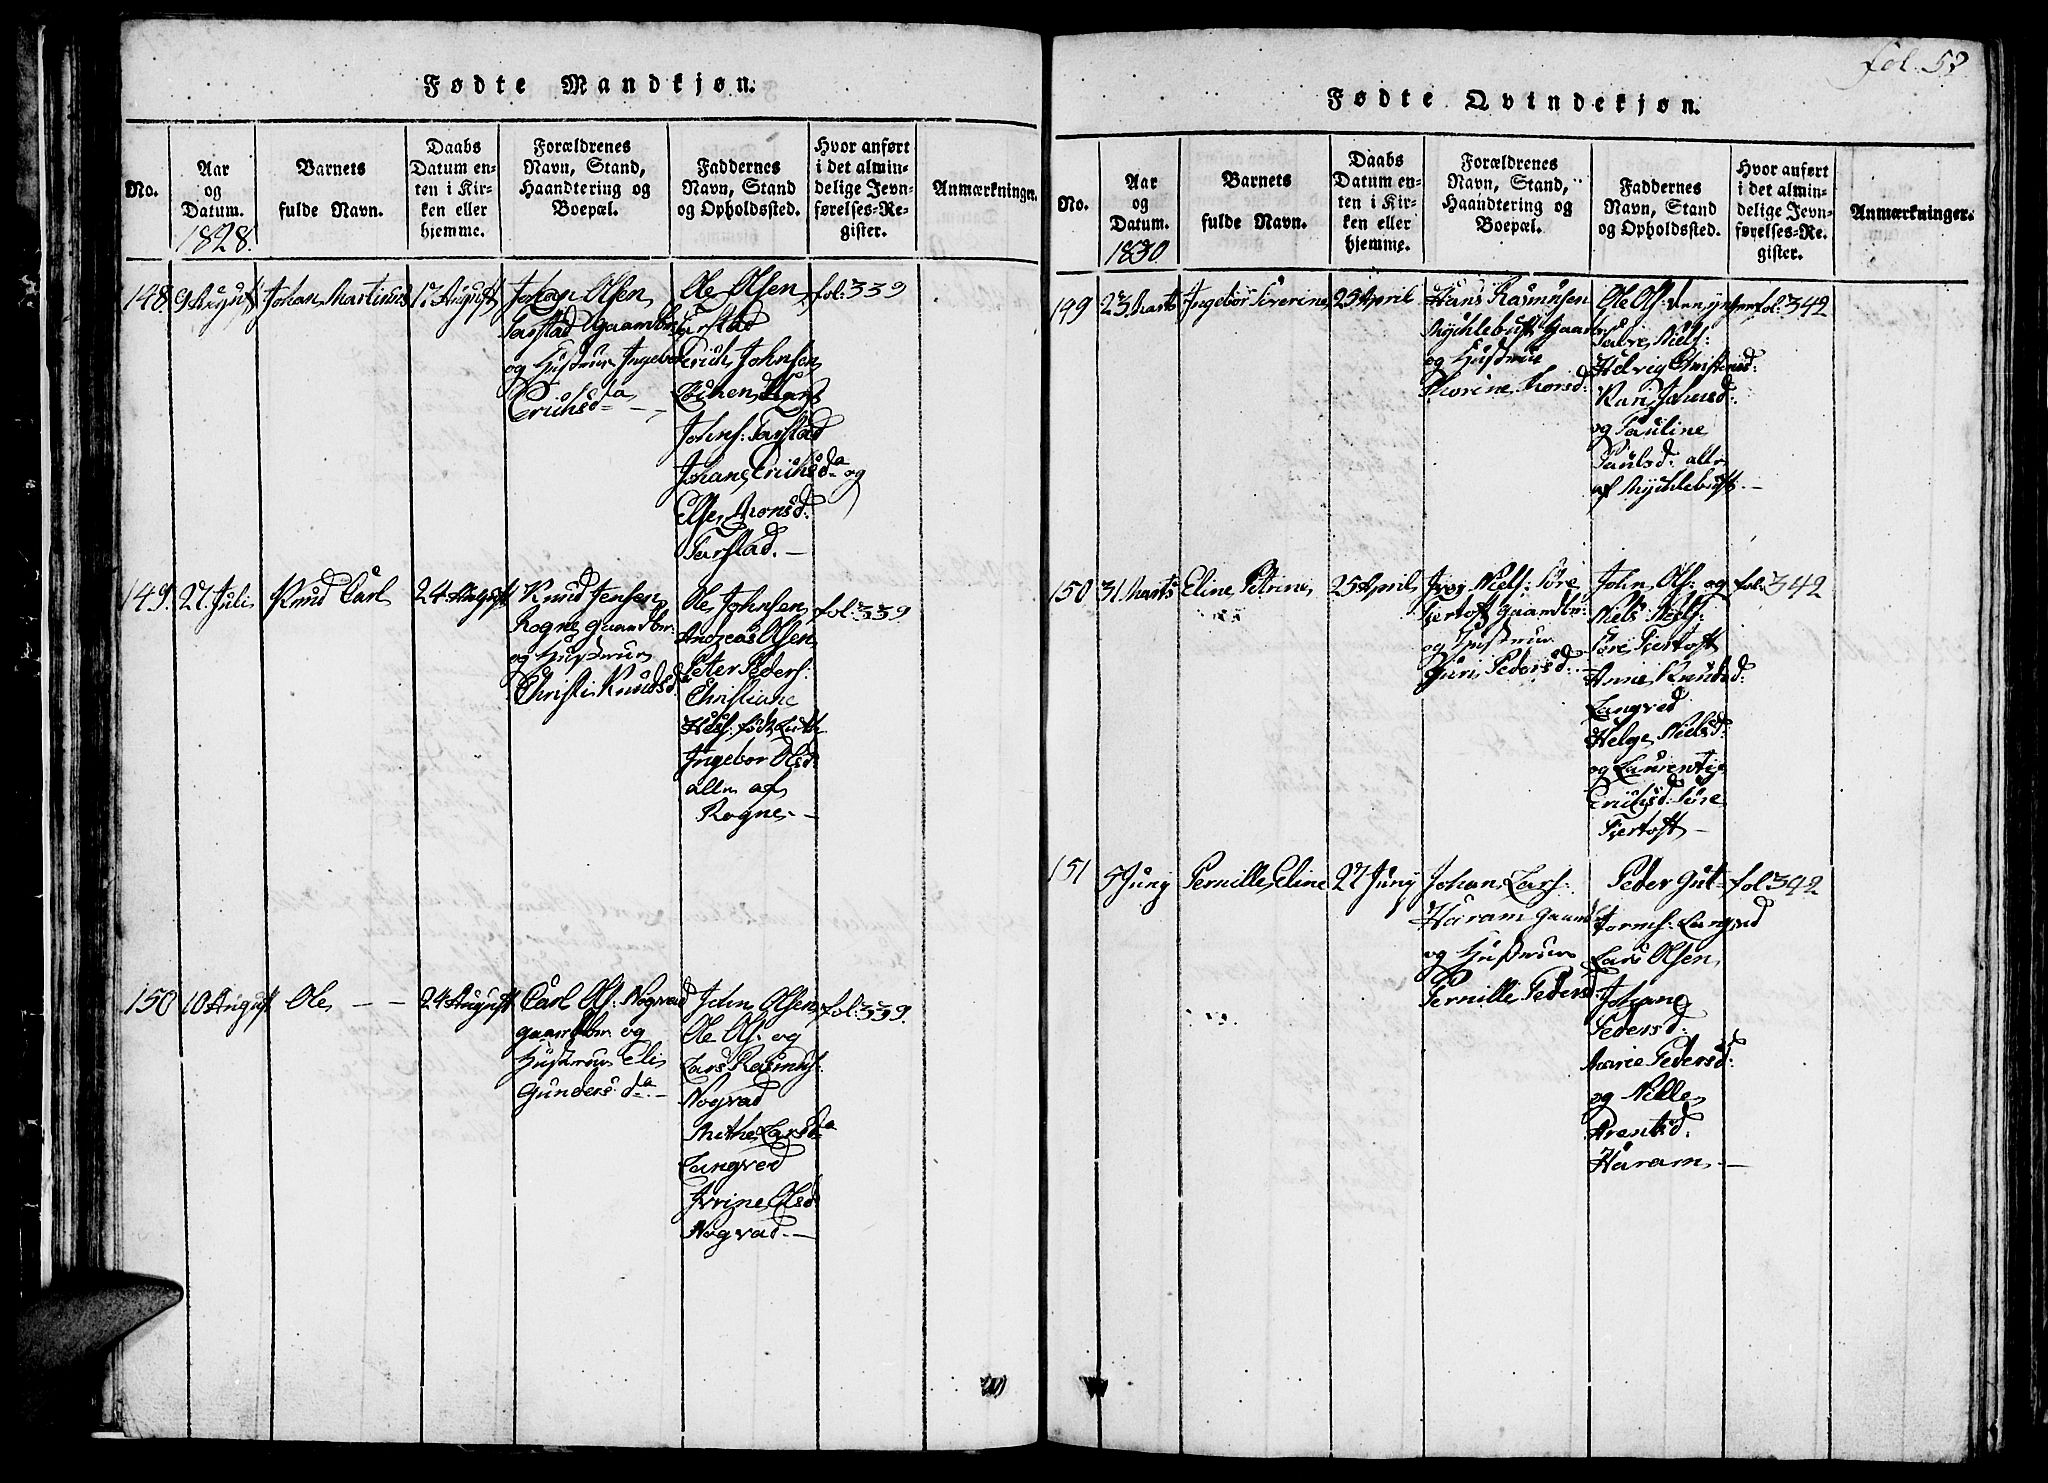 Fødte Mandkjøn.
No.
Aar
og
Datum.
1828.
Barnets
fulde Navn.
Daabs
Datum en-
ten i Kir-
ken eller
hjemme.
Forældrenes
Navn, Stand,
Haandtering og
Boepæl.
Faddernes
Navn, Stand
og Opholdssted.
Hvor anført
i det almin-
delige Jevn-
førelses-Re-
gister.
Anmærkninger.
148.
9 August
Johan Martinus
17 August
Johan Olsen
Tarstad Gaardbr:
og Hustrue Ingebor
Erichsda
Ole Olsen
Tarstad
Erich Johnsen
Hans
Johns: Tarstad
Johane Erichsda og
Else Aronsd:
Tarstad. —
fol: 339
149.
27 Juli
Knud Carl
24 August
Knud Jensen
Rogne gaardbr:
og Hustrue
Christi Knudsd:
Ole Johnsen
Andreas Olsen
Peter Peders:
Christiane
født
Ingebor Olsd:
alle af
Rogne —
fol: 339
150
10 August
Ole — —
24 August
Carl Ols: Nogvad
gaardbr. og
Hustrue Eli
Gunders: da. —
John Olsen
Ole Ols: og
Lars Rasmus:
Nogvad
Mathe Larsda
Langved
Ivrine Olsd:
Nogvad. —
fol: 339.
fol. 5
Fødte Qvindekjøn.
No.
Aar
og
Datum.
1830.
Barnets
fulde Navn.
Daabs
Datum en-
ten i Kir-
ken eller
hjemme.
Forældrenes
Navn, Stand,
Haandtering og
Boepæl.
Faddernes
Navn, Stand
og Opholdssted.
Hvor anført
i det almin-
delige Jevn-
førelses-Re-
gister.
Anmærkninger.
149
23 Marts
Ingebor Siverine
25 April
Hans Rasmusen
Mychlebust Gaardbr:
og Hustrue
Thorine Thorsd:
Ole Ols:
Niels:
Helvig Christensd:
Karen
og Pauline
Paulsd: alle
af Mychlebust. —
fol: 342
150
31 Marts
Eline Petrine
25 April
Iver Niels: Søre
Fjertoft Gaardbr:
og Hustrue
Guri Pedersd: —
John Ols: og
Niels Niels:
Søre Fjertoft
Anne Knudsd:
Langved
Helge Nielsd:
og Laurentze
Erichsd: Søre
Fjertoft —
fol: 342
151
5 Juny
Pernille Eline
27 Juny
Johan Lars:
Haram gaardbr
og Hustrue
Pernille Pedersd:
Peder Gut-
torms: Langved
Lars Olsen
Johane
Pedersd:
Marie Pedersd:
og Nille
Arentsd.
Haram —
fol 342